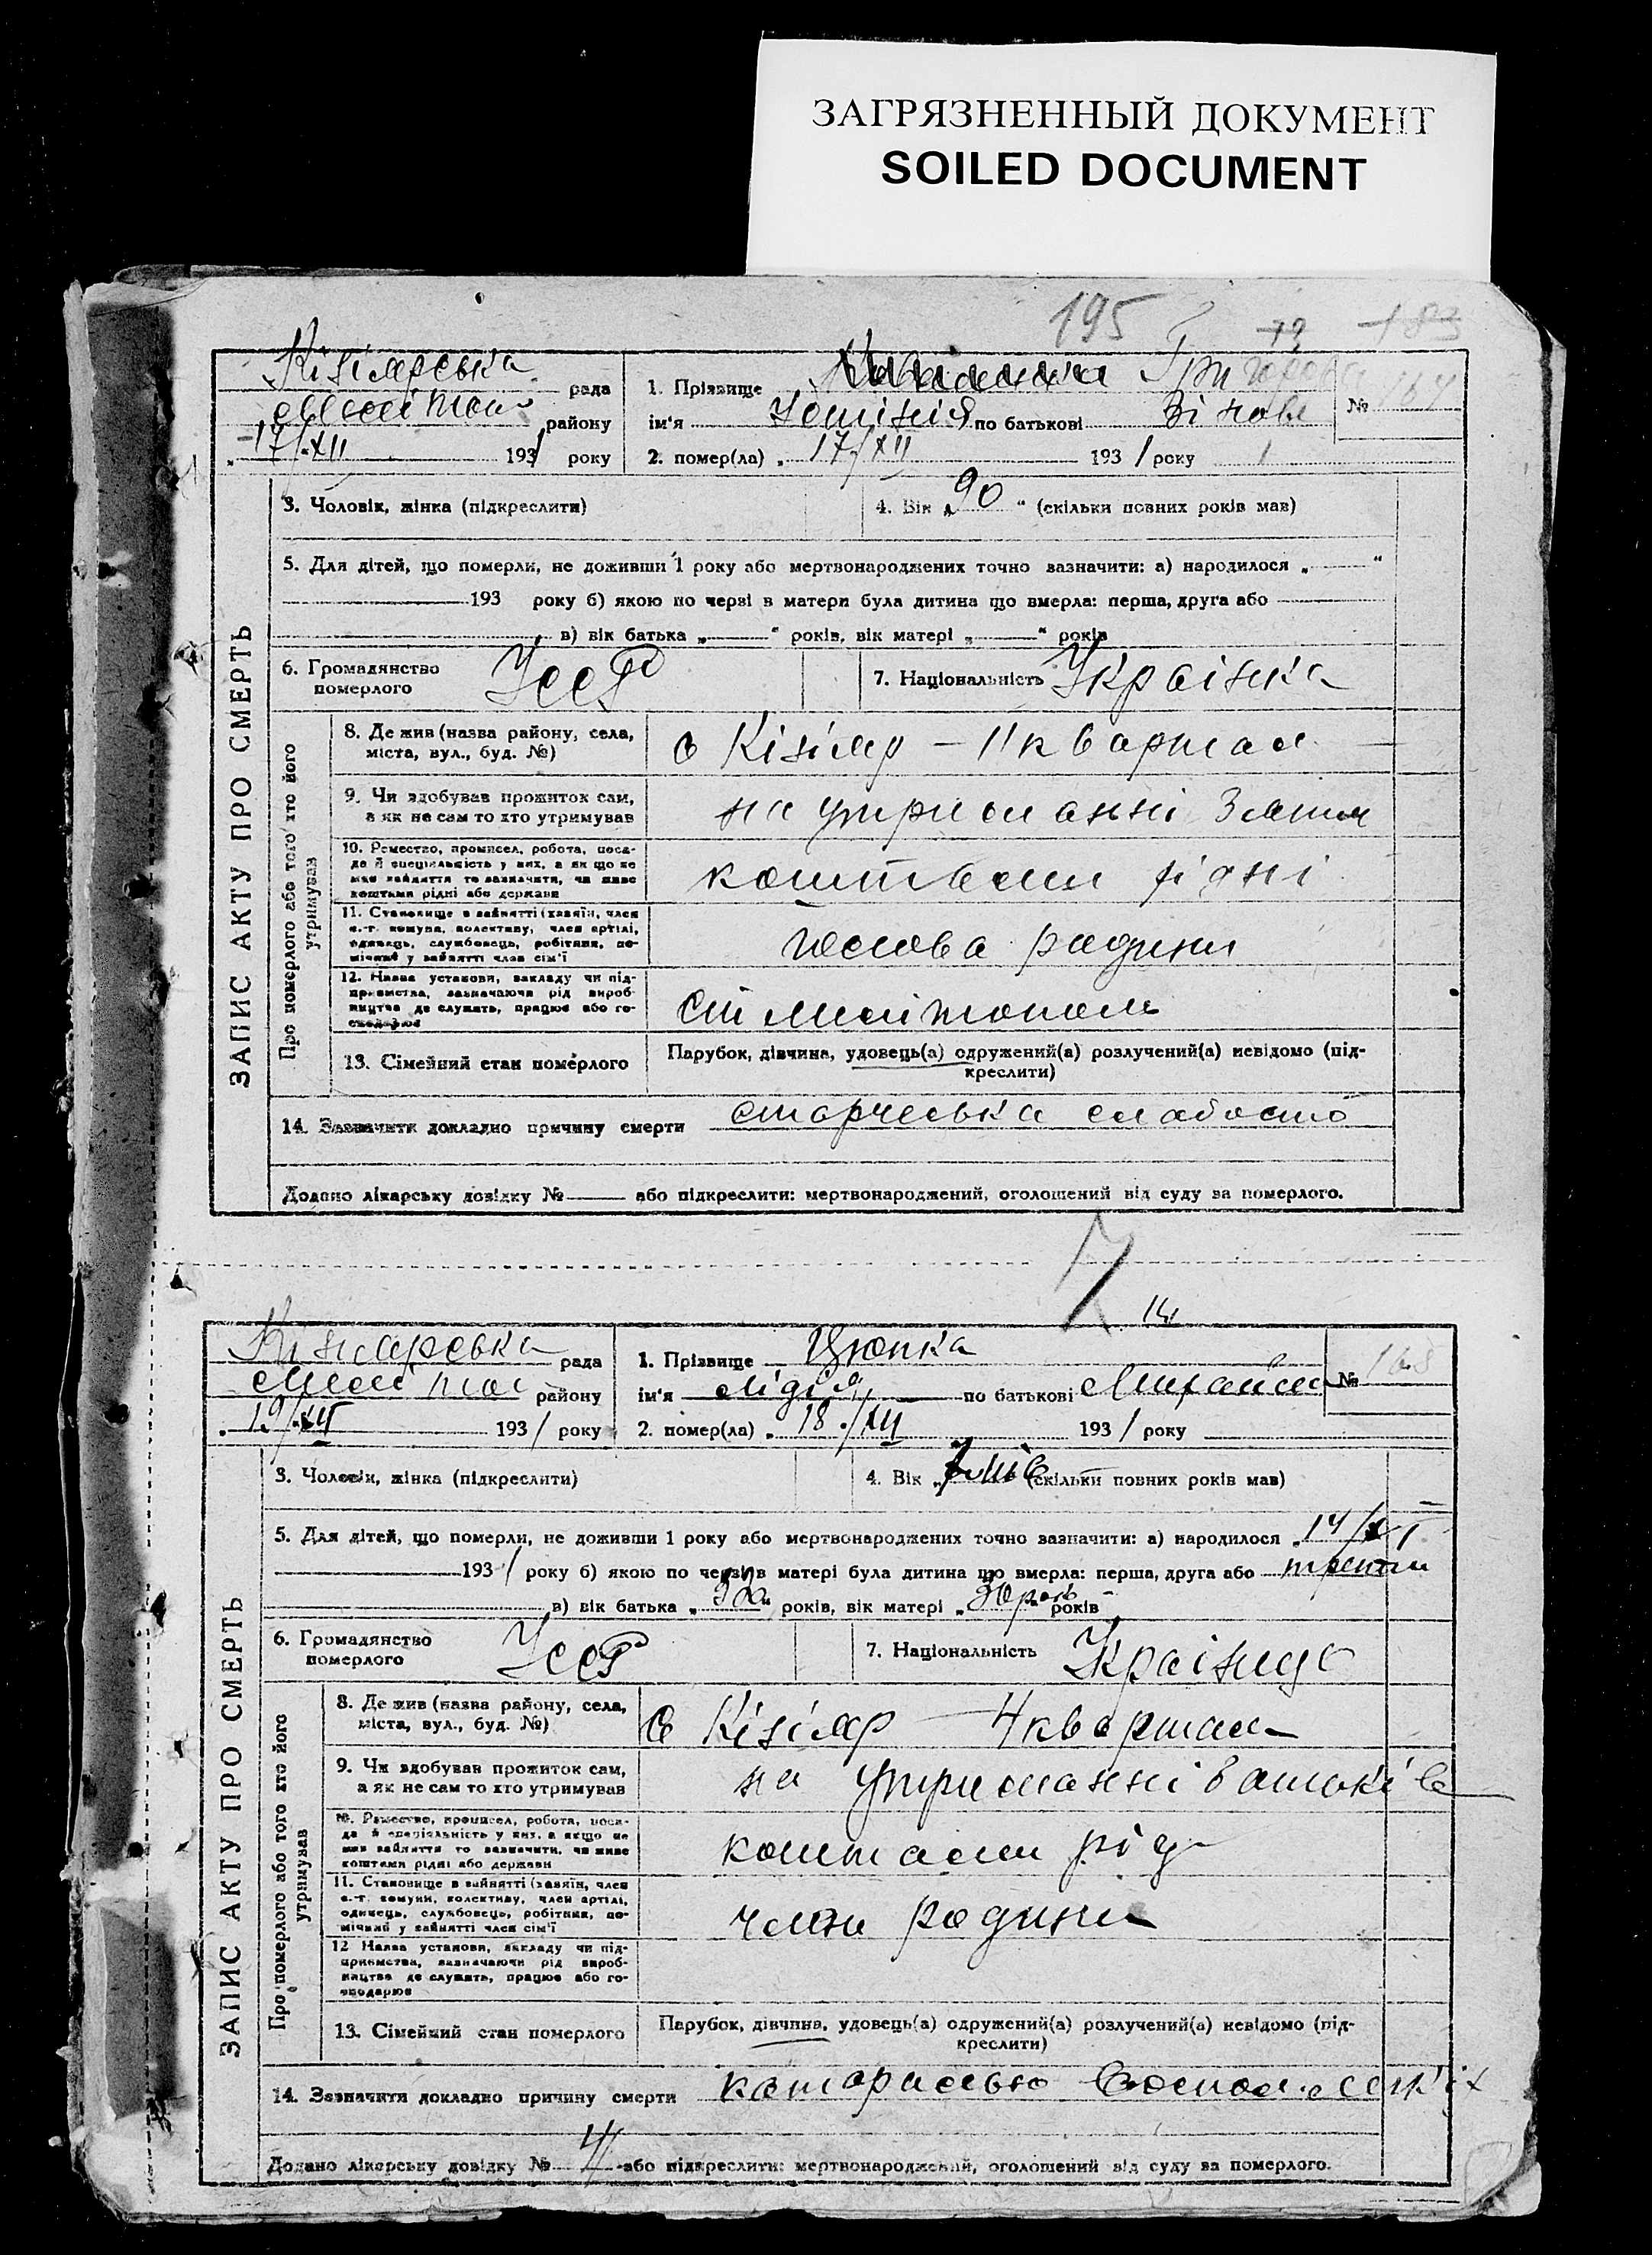 ЗАГРЯЗНЕННЫЙ ДОКУМЕНТ
SOILED DOCUMENT
195
79 183
Кізіярська рада
району
17/XII 1931 року
1. Прізвище
ім'я Устінія по батькові Зінов
2. помер(ла) „ 17/XII 1931 року
№ 167
ЗАПИС АКТУ ПРО СМЕРТЬ
3. Чоловік, жінка (підкреслити)
4. Вік „ 90 “ (скільки повних років мав)
5. Для дітей, що померли, не доживши 1 року або мертвонароджених точно зазначити: а) народилося „ “
193 року б) якою по черзі в матери була дитина що вмерла: перша, друга або
в) вік батька „ “ років, вік матері „ “ років
6. Громадянство померлого УССР
7. Національність Українка
Про померлого або того хто його утримував
8. Де жив (назва району, села, міста, вул., буд. №)
с Кізіяр – 11 квартал
9. Чи здобував прожиток сам, а як не сам то хто утримував
на утриманні Зятя
10. Ремество, промисел, робота, посада й спеціяльність у них, а як що не має зайняття то зазначити, чи живе коштами рідні або держави
рідні
11. Становище в зайнятті (хазяїн, член с.-г. комуни, колективу, член артілі, одинець, службовець, робітник, помічний у зайнятті член сім'ї
голова родини
12. Назва установи, закладу чи підприємства, зазначаючи рід виробництва де служить, працює або господарює
ст Мелітополь
13. Сімейний стан померлого
Парубок, дівчина, удовець(а) одружений(а) розлучений(а) невідомо (підкреслити)
14. Зазначити докладно причину смерти старческа слабость
Додано лікарську довідку № або підкреслити: мертвонароджений, оголошений від суду за померлого.
14
Кізіярська рада
району
19/XII 1931 року
1. Прізвище Цюпка
ім'я Лідія по батькові Михайл
2. помер(ла) „ 18/XII 1931 року
№ 168
ЗАПИС АКТУ ПРО СМЕРТЬ
3. Чоловік, жінка (підкреслити)
4. Вік „ (скільки повних років мав)
5. Для дітей, що померли, не доживши 1 року або мертвонароджених точно зазначити: а) народилося „ 14/XI
1931 року б) якою по черзі в матері була дитина що вмерла: перша, друга або
в) вік батька „ “ років, вік матері „ років
6. Громадянство померлого УССР
7. Національність
Про померлого або того хто його утримував
8. Де жив (назва району, села, міста, вул., буд. №)
с Кізіяр – 4 квартал
9. Чи здобував прожиток сам, а як не сам то хто утримував
на утриманні батьків
10. Ремество, промисел, робота, посада й спеціяльність у них, а якщо не має зайняття то зазначити, чи живе коштами рідні або держави
коштами рід
11. Становище в зайнятті (хазяїн, член с.-г. комуни, колективу, член артілі, одинець, службовець, робітник, помічний у зайнятті член сім'ї
член родини
12 Назва установи, закладу чи підприємства, зазначаючи рід виробництва де служить, працює або господарює
13. Сімейний стан померлого
Парубок, дівчина, удовець(а) одружений(а) розлучений(а) невідомо (підкреслити)
14. Зазначити докладно причину смерти
Додано лікарську довідку № або підкреслити: мертвонароджений, оголошений від суду за померлого.